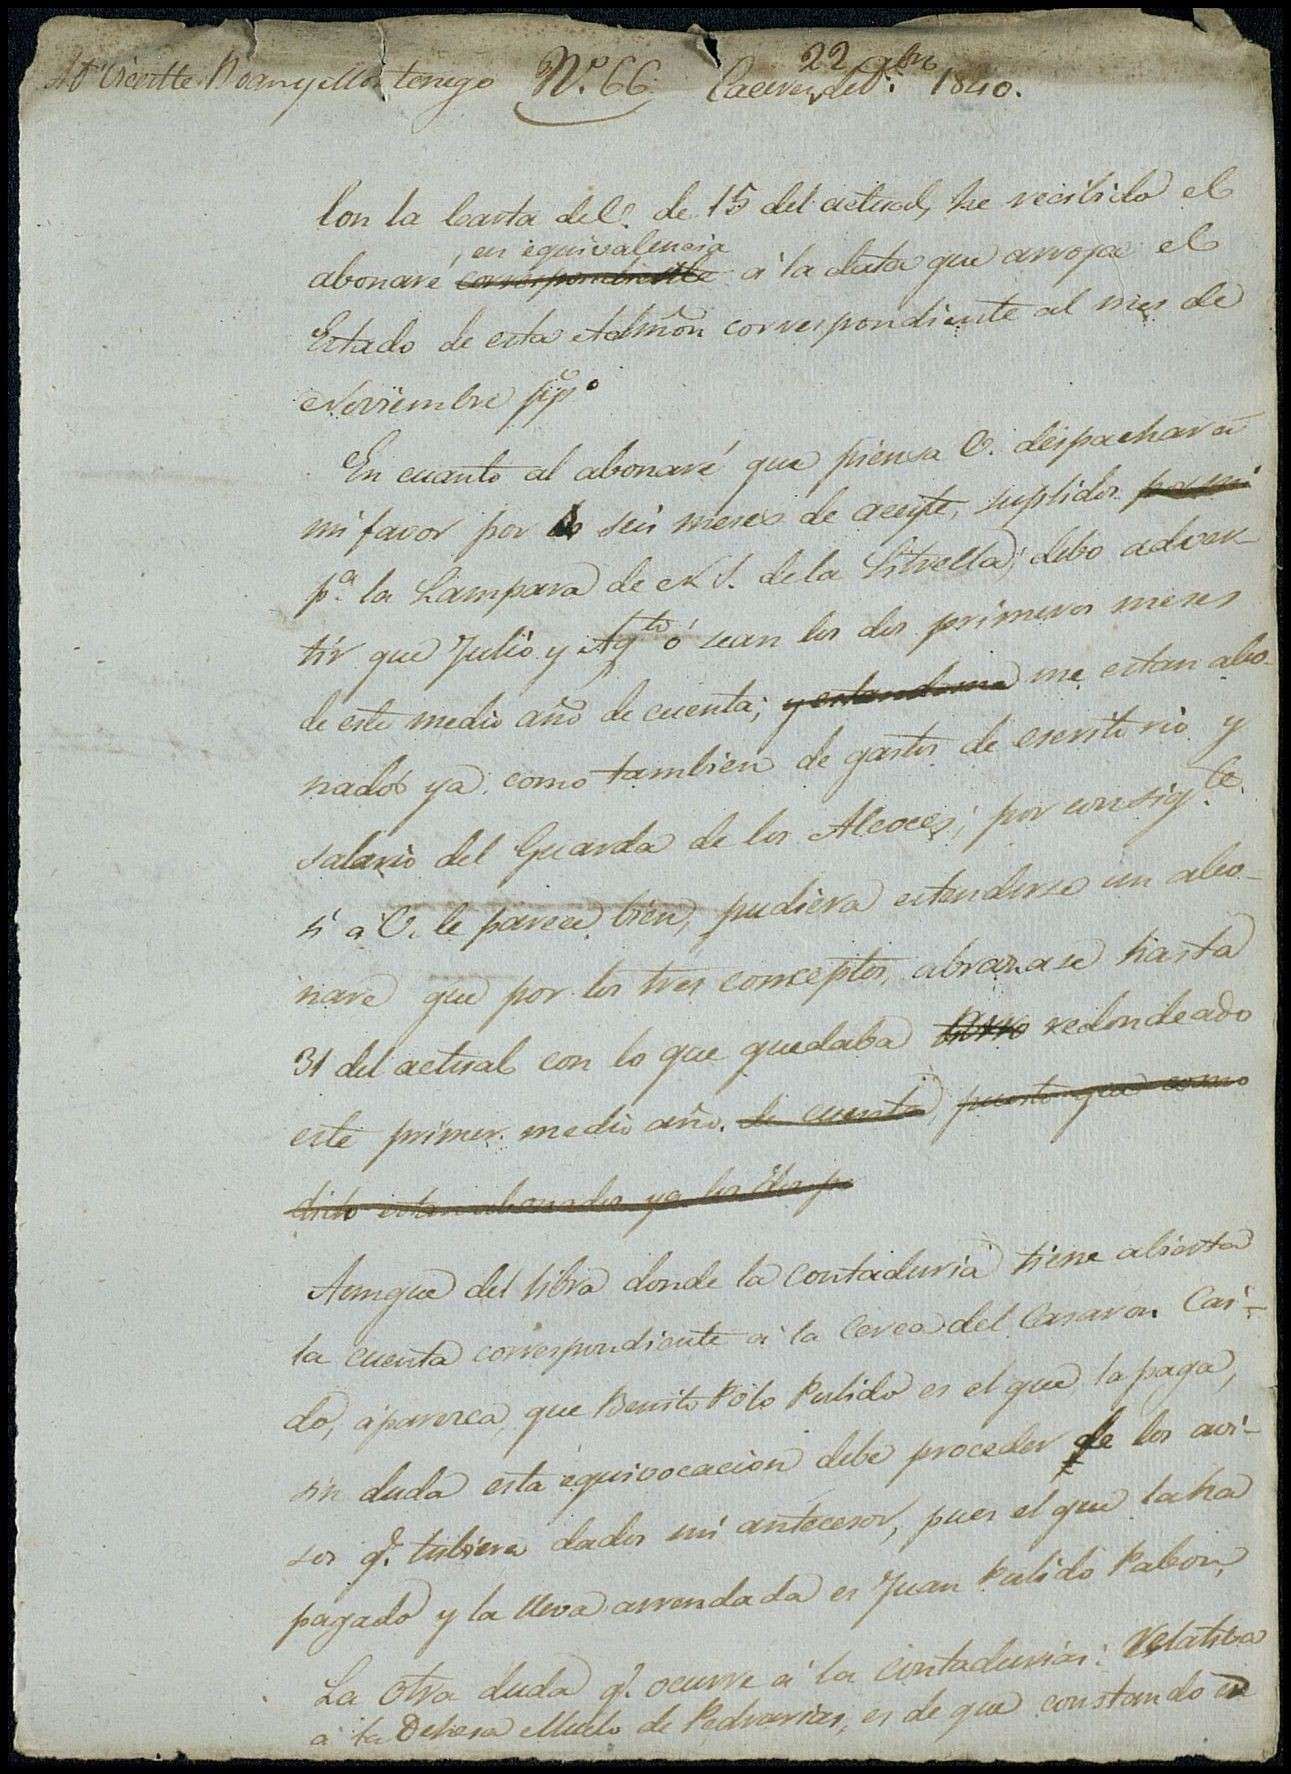 Vicente Boan y Montenegro Nº 66. Caceres 22 de Dbre 1840.
Con la Carta de V. de 15 del actual, he recibido el
, en equivalencia
abonaré correspondiente á la data que arroja el
Estado de esta Admñon correspondiente al mes de
Noviembre ppº
En cuanto al abonaré que piensa V. despachar á
mi favor por los seis meses de aceyte, suplidos por mi
pª la Lampara de N S. de la Estrella; debo adver-
tir que Julio y Agto ó sean los dos primeros meses
de este medio año de cuenta; y estandome me estan abo-
nados ya como tambien de gastos de escritorio y
salario del Guarda de los Alcoces; por consigte
si a V. le parece bien, pudiera estenderse un abo-
naré que por los tres conceptos, abrazase hasta
31 del actual con lo que quedaba redondeado
este primer medio año. de cuenta, puesto que como
dicho estan abonados ya los dos p
Aunque del libro donde la Contaduria tiene abierta
la cuenta correspondiente á la Cerca del Casaron Cai-
do, aparezca, que Benito Polo Pulido es el que la paga,
sin duda esta equivocacion debe proceder de los avi-
sos q. tubiera dados mi antecesor, pues el que la ha
pagado y la lleva arrendada es Juan Pulido Pabon,
La otra duda q. ocurre á la contaduria: relativa
á la Dehesa Suelo de Pedrarias, es de que constando en